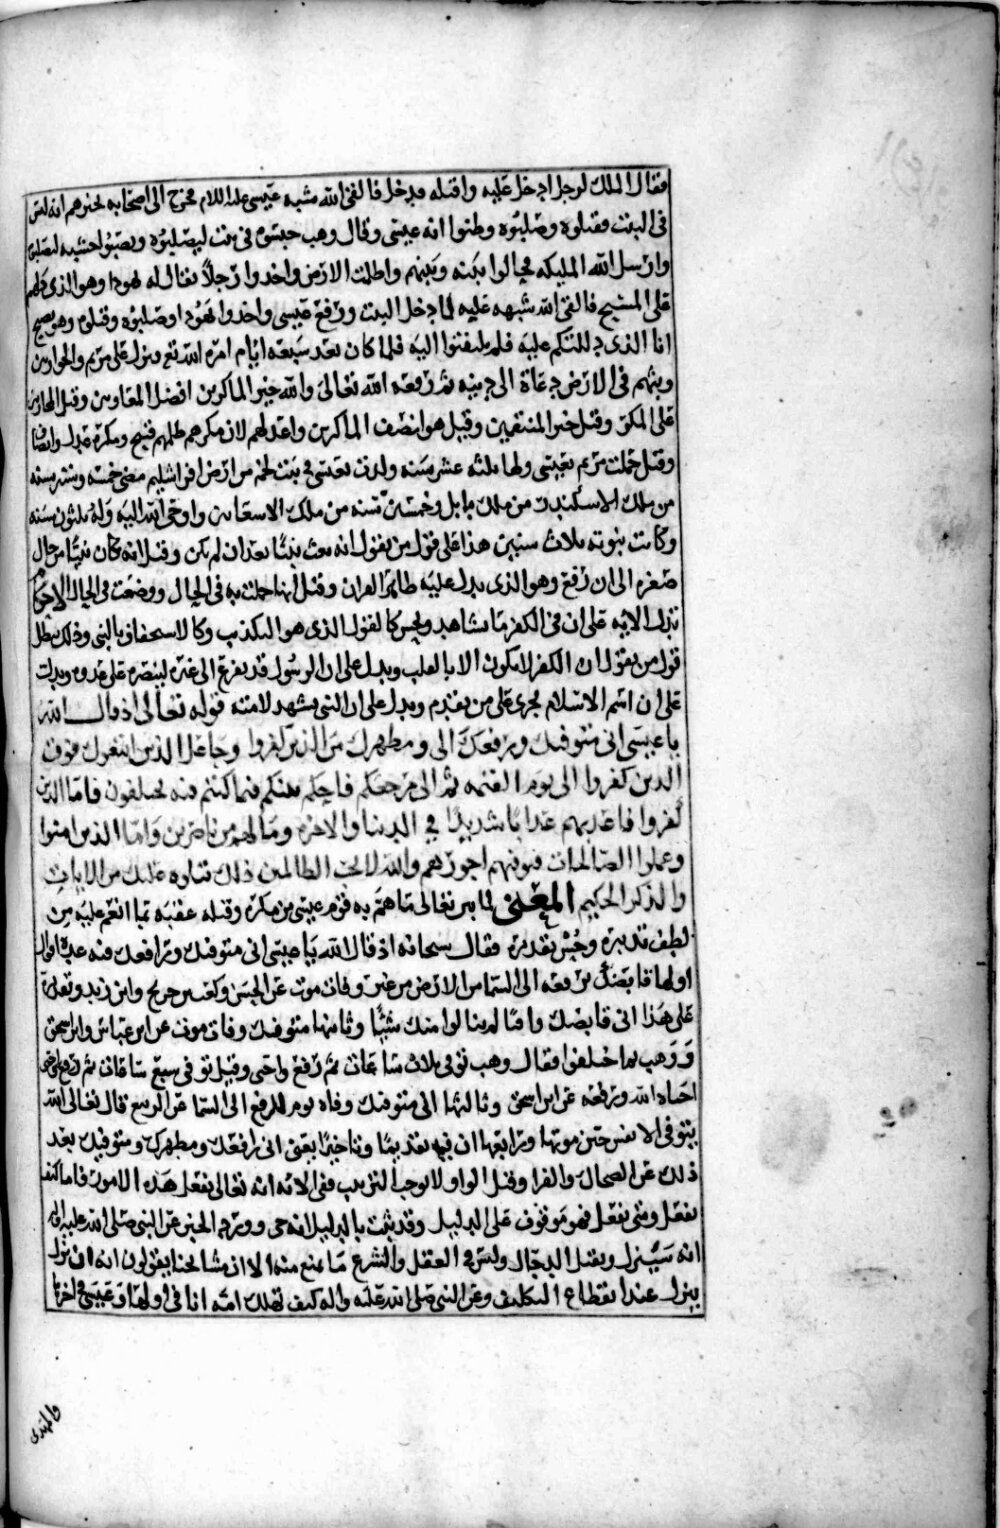 فقال الملك لرجل ادخل عليه واقتله فدخل فالقى الله شبه عيسى عليه السلام فخرج الى اصحابه يخبرهم انه ليس
فى البيت فقتلوه وصلبوه وظنوا انه عيسى وقال وهب حبسوه فى بيت ليصلبوه ونصبوا خشبه لصلبه
وارسل الله المليكه فحالوا بينه وبينهم واظلمت الارض واخذوا رجلا يقال له يهودا وهو الذى دلهم
على المسيح فالقى الله شبهه عليه لما دخل البيت ورفع عيسى واخذوا يهودا وصلبوه وقتلوه وهو يصيح
انا الذى دللتكم عليه فلم يلتفتوا اليه فلما كان بعد سبعة ايام امره الله تع فنزل على مريم والحوارين
وبثهم فى الارض دعاة الى دينه ثم رفعه الله تعالى والله خير الماكرين افضل المعاونين وقيل
على المكر وقيل خير المنتقمين وقيل هو انصف الماكرين واعدلهم لان مكرهم ظلمهم قبيح ومكره عدل وانصاف
وقيل حملت مريم بعيسى ولها ثلثه عشر سنه وولدت بعيسى فى بيت لحم من ارض اوراشليم لمضى خمسه وستين سنه
من ملك الاسكندر من ملك بابل وخمسين سنه من ملك واوحى الله اليه وله ثلثون سنه
وكانت نبوته ثلاث سنين هذا على قول من يقول انه بعث نبيا بعد ان لم يكن وقيل انه كان نبيا من حال
صغره الى ان رفع وهو الذى يدل عليه ظاهر القران وقيل انها حملت به فى الحال ووضعت فى الحال الاحكام
تدل الايه على ان فى الكفر ما يشاهد ويحس كالقول الذى هو التكذيب وكالاستخفاف بالنبى وذلك يبطل
قول من يقول ان الكفر لا يكون الا بالقلب ويدل على ان الرسول قد يفزع الى غيره لينصره على عدوه ويدل
على ان اسم الاسلام يجرى على من تقدم ويدل على ان النبى يشهد لامته قوله تعالى اذ قال الله
يا عيسى انى متوفيك ورافعك الى ومطهرك من الذين كفروا وجاعل الذين اتبعوك فوق
الذين كفروا الى يوم القيمه ثم الى مرجعكم فاحكم بينكم فيما كنتم فيه تختلفون فاما الذين
كفروا فاعذبهم عذابا شديدا فى الدنيا والاخره وما لهم من ناصرين واما الذين امنوا
وعملوا الصالحات فيوفيهم اجورهم والله لا يحب الظالمين ذلك نتلوه عليك من الايات
والذكر الحكيم المعنى لما بين تعالى ما هم به قوم عيسى من مكره وقتله عقبه بما انعم عليه من
لطف تدبيره وحسن تقديره فقال سبحانه اذ قال الله يا عيسى انى متوفيك ورافعك فيه عدة اقوال
اولها قابضك برفعه الى السما من الارض من غير وفاة موت عن الحسن وكعب وابن جريج وابن زيد وتقديره
على هذا انى قابضك وافيا لم ينالوا منك شيئا وثانيها متوفيك وفاة موت عن ابن عباس وابن اسحق
ووهب ثم اختلفوا فقال وهب توفى ثلاث ساعات ثم رفع واحى وقيل توفى سبع ساعات ثم
احياه الله ورفعه عن ابن اسحق وثالثها انى متوفيك وفاه نوم للرفع الى السما عن الربيع قال تعالى الله
يتوفى الانفس حين موتها ورابعها ان فيها تقديما وتاخيرا يعنى انى رافعك ومطهرك ومتوفيك بعد
ذلك عن الضحاك والفرا وقيل الواو لا يوجب الترتيب ففى الايه انه تعالى يفعل هذه الامور فاما كيف
يفعل ومتى يفعل فهو موقوف على الدليل وقد ثبت بالدليل انه حى وورد الخبر عن النبى صلى الله عليه واله
انه سينزل ويقتل الدجال وليس فى العقل والشرع ما يمنع منه الا ان مشائخنا يقولون انه ان نزل
ينزل عند انقطاع التكليف وعن النبى صلى الله عليه واله كيف تهلك امة انا فى اولها وعيسى فى اخرها
والمهدى